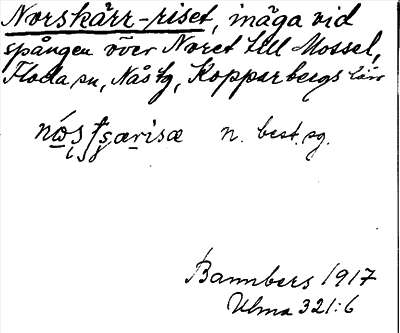 Norskärr-riset, inäga vid
spången över Noret till Mossel,
Floda sn, Nås tg, Kopparbergs län
n. best. sg.
Bannbers 1917
Ulma 321:6